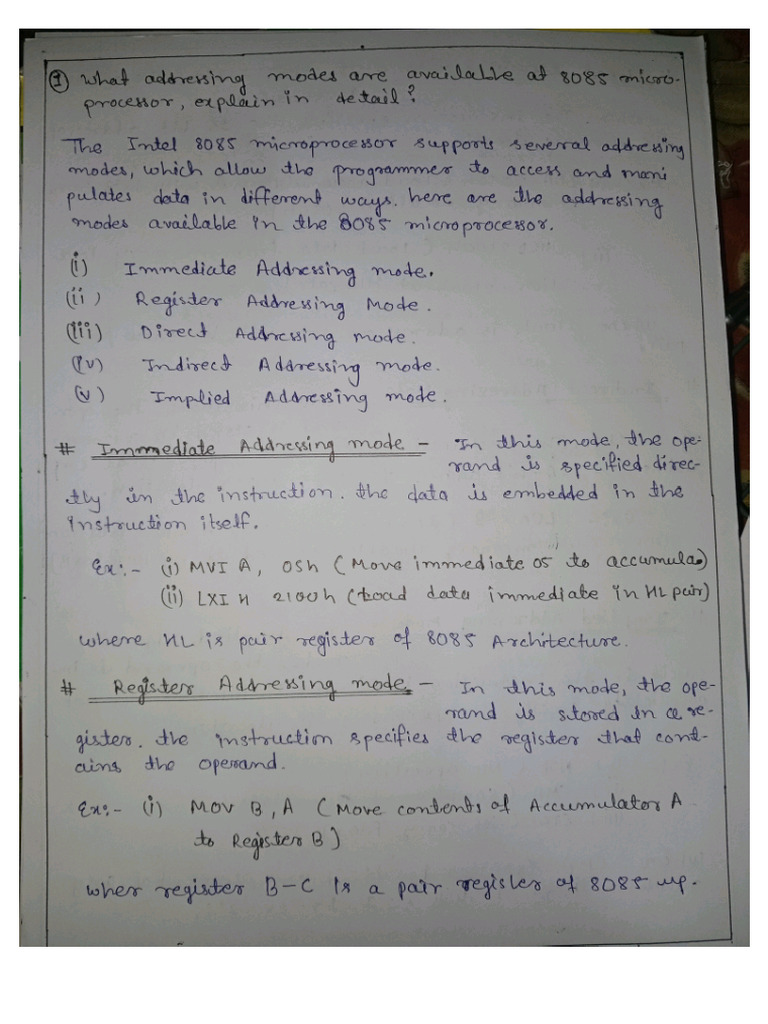 ① What addressing modes are available at 8085 micro-
processor, explain in detail?
The Intel 8085 microprocessor supports several addressing
modes, which allow the programmer to access and mani
pulates data in different ways. here are the addressing
modes available in the 8085 microprocessor.
(i) Immediate Addressing mode.
(ii) Register Addressing Mode.
(iii) Direct Addressing mode.
(iv) Indirect Addressing mode.
(v) Implied Addressing mode.
# Immediate Addressing mode - In this mode, the ope-
rand is specified direc-
tly in the instruction. the data is embedded in the
instruction itself.
Ex:- (i) MVI A, 05h (Move immediate 05 to accumula.)
(ii) LXI H 2100h (Load data immediate in HL pair)
where HL is pair register of 8085 Architecture.
# Register Addressing mode. - In this mode, the ope-
rand is stored in a re-
gister. the instruction specifies the register that cont-
ains the operand.
Ex:- (i) MOV B, A (Move contents of Accumulator A
to Register B)
wher register B-C is a pair register of 8085 up.